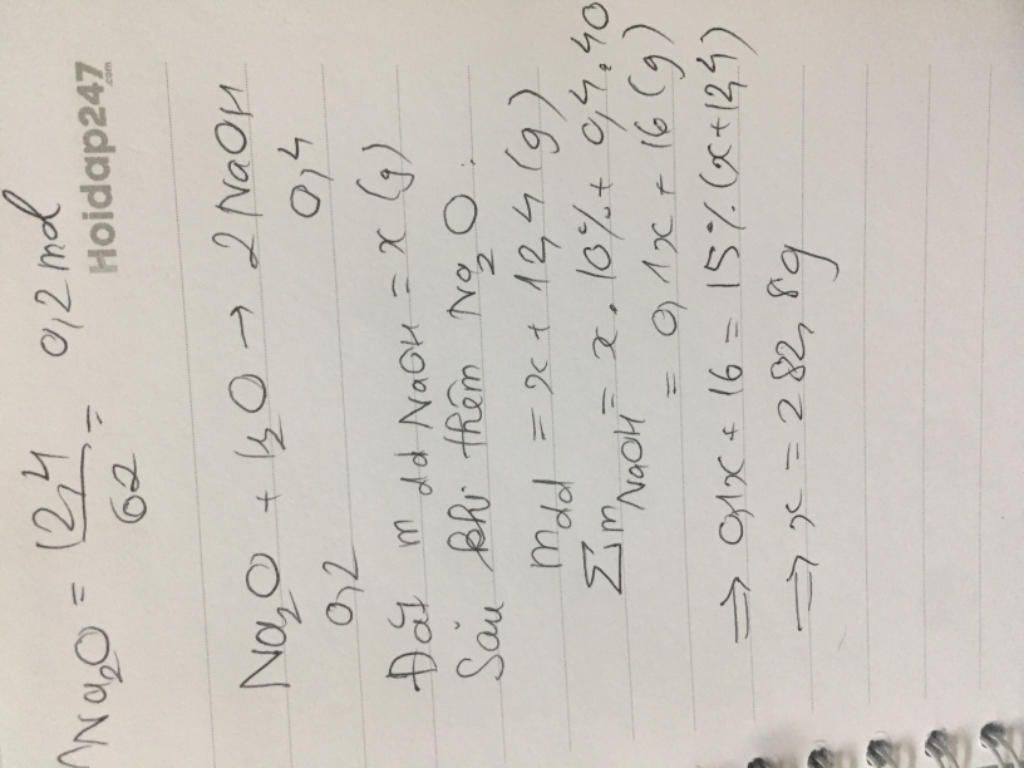 nNa₂O = 12,4/62 = 0,2 mol
Hoidap247.com
Na₂O + H₂O → 2NaOH
0,2 0,4
Đặt m dd NaOH = x (g)
Sau khi thêm Na₂O:
mdd = x + 12,4 (g)
∑mNaOH = x . 10% + 0,4 . 40
= 0,1x + 16 (g)
⇒ 0,1x + 16 = 15%.(x+12,4)
⇒ x = 282,8g